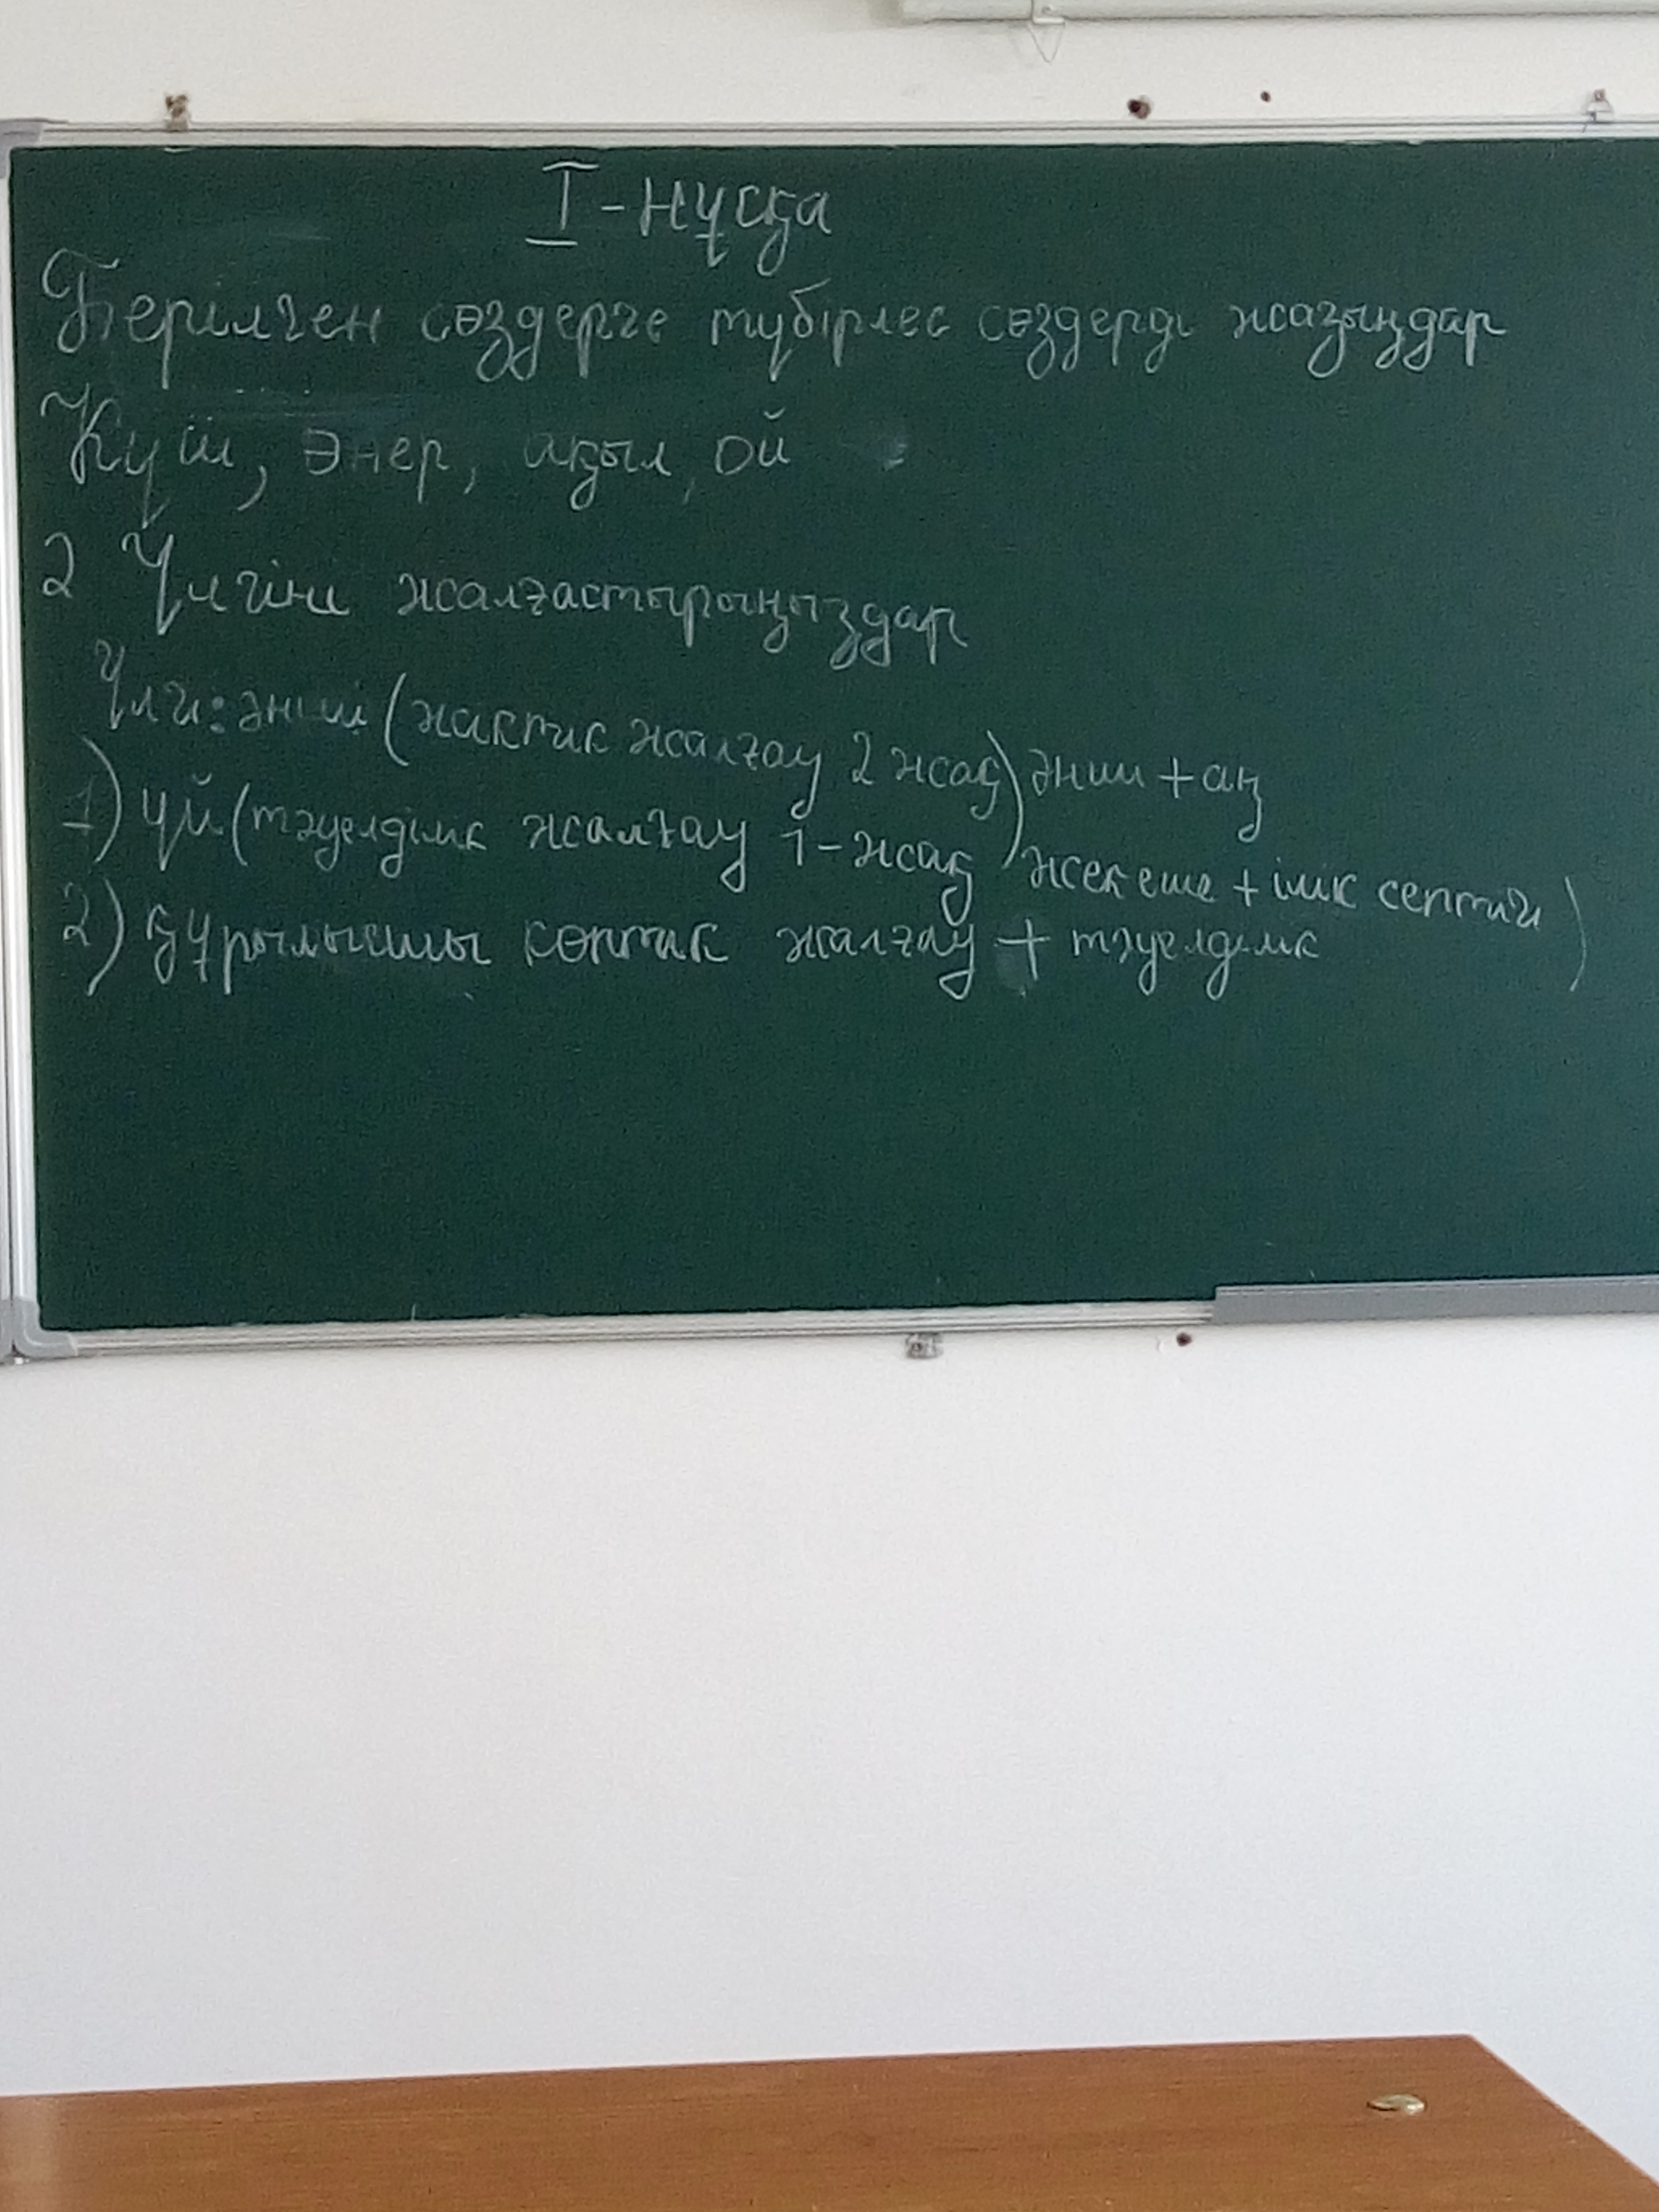 I-нұсқа
Берілген сөздерге түбірлес сөздерді жазыңдар
Күш, Өнер, ақыл, ой
2 Үлгіні жалғастырыңыздар
Үлгі: әнші (жактік жалғау 2 жақ) әнші + аң
1) үй (тәуелділік жалғау 1-жақ жекеше + ілік септігі)
2) құрылысшы көптік жалғау + тәуелділік